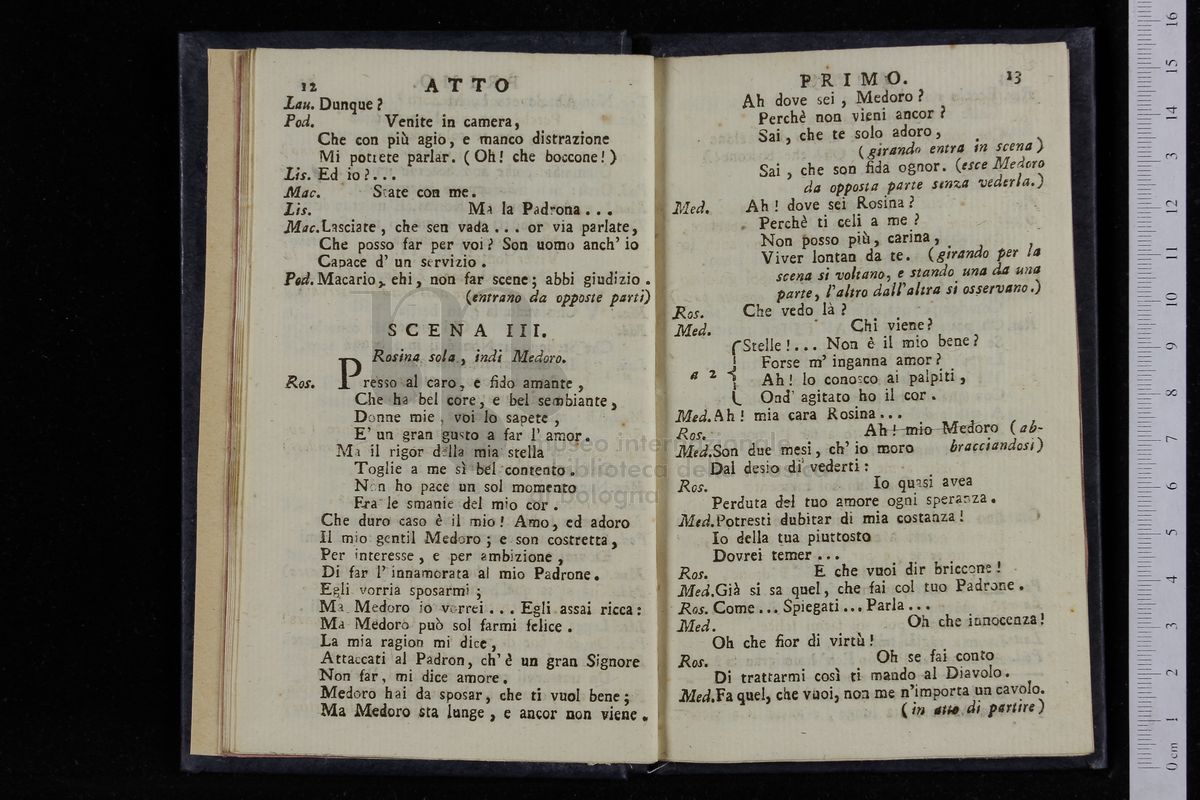 12 ATTO
Lau. Dunque?
Pod. Venite in camera,
Che con più agio, e manco distrazione
Mi potrete parlar. (Oh! che boccone!)
Lis. Ed io?...
Mac. State con me.
Lis. Ma la Padrona...
Mac. Lasciate, che sen vada... or via parlate,
Che posso far per voi? Son uomo anch' io
Capace d' un servizio.
Pod. Macario, ehi, non far scene; abbi giudizio.
(entrano da opposte parti)
SCENA III.
Rosina sola, indi Medoro.
Ros. Presso al caro, e fido amante,
Che ha bel core, e bel sembiante,
Donne mie, voi lo sapete,
E' un gran gusto a far l' amor.
Ma il rigor della mia stella
Toglie a me sì bel contento.
Non ho pace un sol momento
Fra le smanie del mio cor.
Che duro caso è il mio! Amo, ed adoro
Il mio gentil Medoro; e son costretta,
Per interesse, e per ambizione,
Di far l' innamorata al mio Padrone.
Egli vorria sposarmi;
Ma Medoro io vorrei... Egli assai ricca:
Ma Medoro può sol farmi felice.
La mia ragion mi dice,
Attaccati al Padron, ch' è un gran Signore
Non far, mi dice amore.
Medoro hai da sposar, che ti vuol bene;
Ma Medoro sta lunge, e ancor non viene.
PRIMO. 13
Ah dove sei, Medoro?
Perchè non vieni ancor?
Sai, che te solo adoro,
(girando entra in scena)
Sai, che son fida ognor. (esce Medoro
da opposta parte senza vederla.)
Med. Ah! dove sei Rosina?
Perchè ti celi a me?
Non posso più, carina,
Viver lontan da te. (girando per la
scena si voltano, e stando una da una
parte, l'altro dall'altra si osservano.)
Ros. Che vedo là?
Med. Chi viene?
Stelle!... Non è il mio bene?
Forse m' inganna amor?
a 2 Ah! lo conosco ai palpiti,
Ond' agitato ho il cor.
Med. Ah! mia cara Rosina...
Ros. Ah! mio Medoro (ab-
Med. Son due mesi, ch' io moro bracciandosi)
Dal desio di vederti:
Ros. Io quasi avea
Perduta del tuo amore ogni speranza.
Med. Potresti dubitar di mia costanza!
Io della tua piuttosto
Dovrei temer...
Ros. E che vuoi dir briccone!
Med. Già si sa quel, che fai col tuo Padrone.
Ros. Come... Spiegati... Parla...
Med. Oh che innocenza!
Oh che fior di virtù!
Ros. Oh se fai conto
Di trattarmi così ti mando al Diavolo.
Med. Fa quel, che vuoi, non me n'importa un cavolo.
(in atto di partire)
museo internazionale
biblioteca della
bologna
0 cm 1 2 3 4 5 6 7 8 9 10 11 12 13 14 15 16